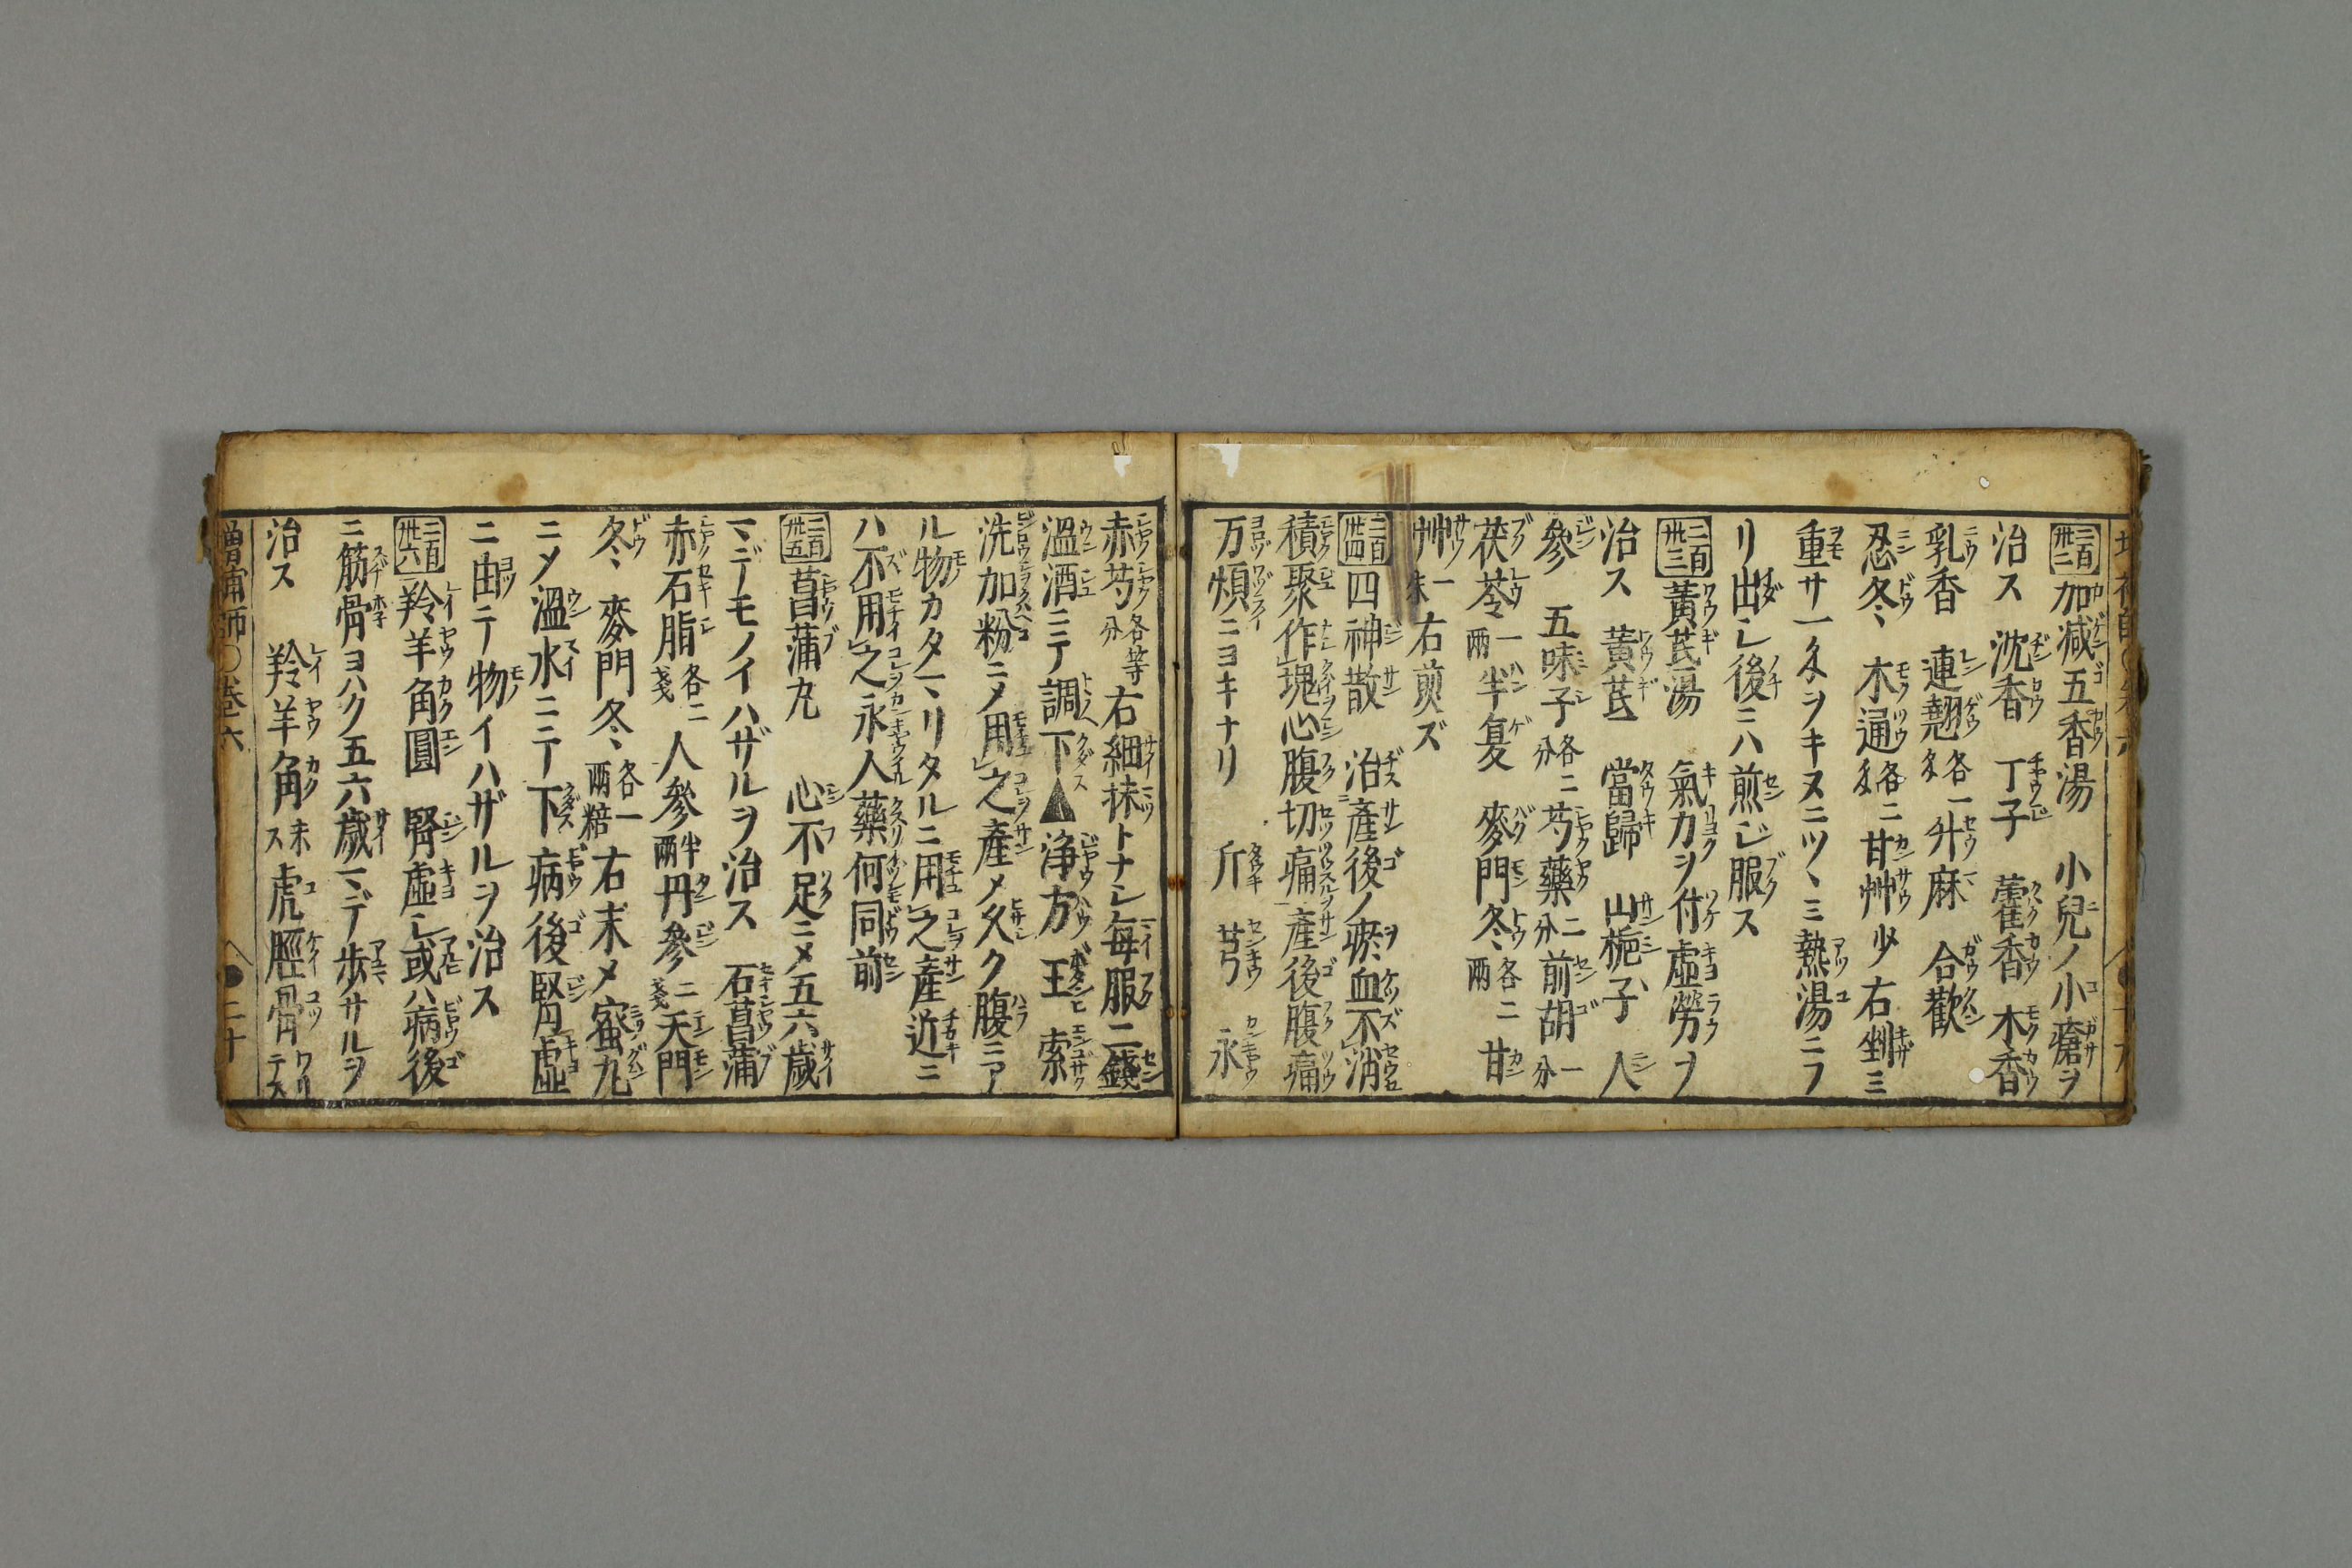 二百卅二 加減五香湯 小兒ノ小瘡ヲ
治ス 沈香 丁子 藿香 木香
乳香 連翹 各一 升麻 合歡
忍冬 木通 各二 甘艸 少 右剉ミ
重サ一 ヲキヌニツヽミ熱湯ニフ
リ出シ後ニハ煎じ服ス
二百卅三 黃芪湯 氣力ヲ付虛勞ヲ
治ス 黃芪 當歸 山梔子 人
參 五味子 各二分 芍藥 二分 前胡 一分
茯苓 一兩 半夏 麥門冬 各二兩 甘
艸 一朱 右煎ズ
二百卅四 四神散 治產後ノ瘀血不消
積聚作塊心腹切痛產後腹痛
万煩ニヨキナリ 斤 芎 永
赤芍 各等分 右細抹トナシ每服二錢
溫酒ニテ調下▲淨方 王 索
洗加粉ニメ用之產メ久ク腹ニア
ル物カタマリタルニ用之產近ニ
ハ不用之永人藥何同前
二百卅五 菖蒲丸 心不足ニメ五六歲
マデモノイハザルヲ治ス 石菖蒲
赤石脂 各二戔 人參 半兩 丹參 二戔 天門
冬 麥門冬 各一兩 右末メ蜜丸
ニメ溫水ニテ下病後腎虛
ニ由テ物イハザルヲ治ス
二百卅六 羚羊角圓 腎虛シ或ハ病後
ニ筋骨ヨハク五六歲マデ歩サルヲ
治ス 羚羊角 末ス 虎脛骨 ワリテス
增補師○卷六 二十